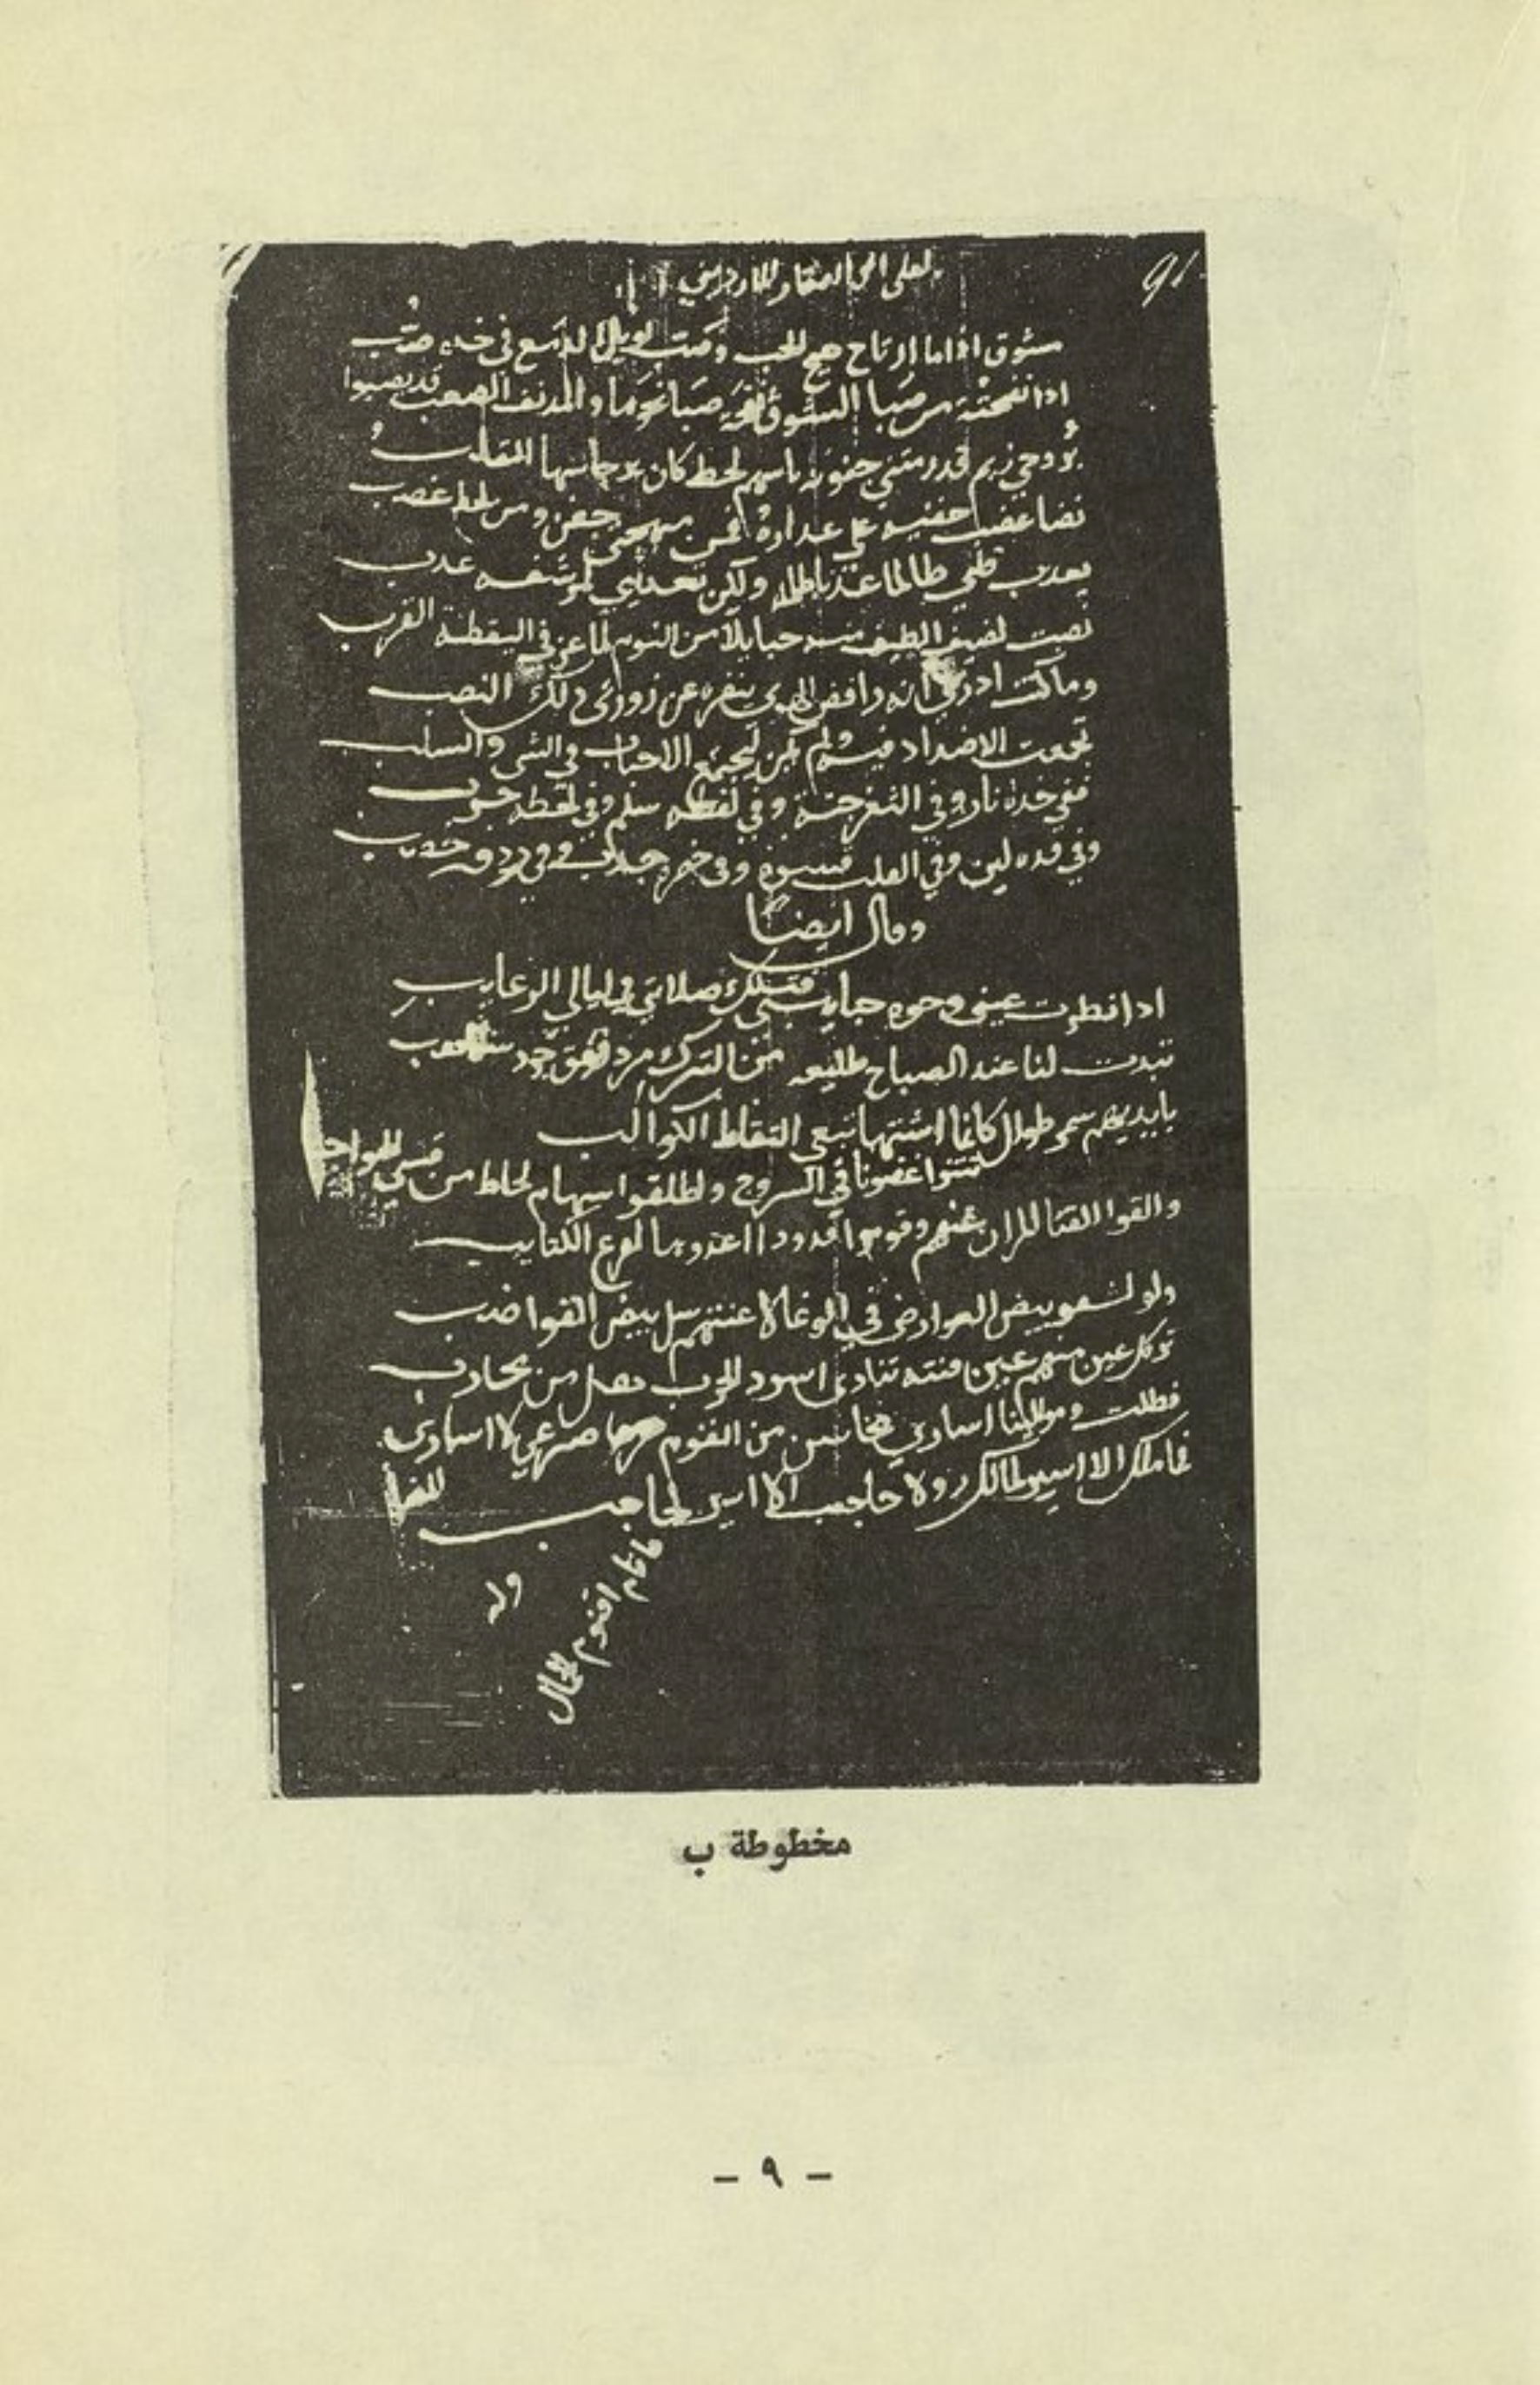 91
مشوق اذا ما ارتاح هيج للحب لوبل الدمع في خده صب
اذا نفحته من صبا الشوق نفحة صبا نحوها والمدنف الصعب قد يصبوا
بروحي ريم قد رمتني جفونه باسهم لحظ كان برجاسها القلب
نضا عضب جفنيه على عداوة فمن مهجتي جفن ومن لحظه عضب
يعذب قلبي ظالما عذبا ظلمه ولكن تعذيبي لمرشفه عذب
نصبت لضيف الطيف منه حبايلا من النوم لما عز في اليقظة القرب
وما كنت ادري انه رافض الهوى ينفره عن زورتي ذلك النصب
تجمعت الاضداد فيه ولم يكن ليجمع الاحباب في الشي والسلب
ففي خده نار وفي الثغر جنة وفي لفظه سلم وفي لحظه حرب
وفي قده لين وفي القلب قسوة وفي خصره جدب وفي ردفه خصب
وقال ايضا
اذا نظرت عيني وجوه حبايبي فتلك صلاتي في ليالي الرغايب
تبدت لنا عند الصباح طليعه من الترك مرد فوق جرد
بايديهم سمر طوال كانما اسنتها تبغي التقاط الكواكب
تثنوا غصونا في السروج واطلقوا سهام لحاظ من قسي الحواجب
والقوا القنا المران عنهم وقوموا قدودا اعدوها لقرع الكتايب
ولو بيض العوارض في الوغا لاغنتهم سل بيض القواضب
عين منهم عين فتنه تنادي اسود الحرب هل من محارب
فظلت وموالينا اسارى محاسن من القوم صرعى لا اسارى
فما ملك الا اسير لمالك ولا حاجب الا اسير لحاجب
وله
مخطوطة ب
– ٩ –